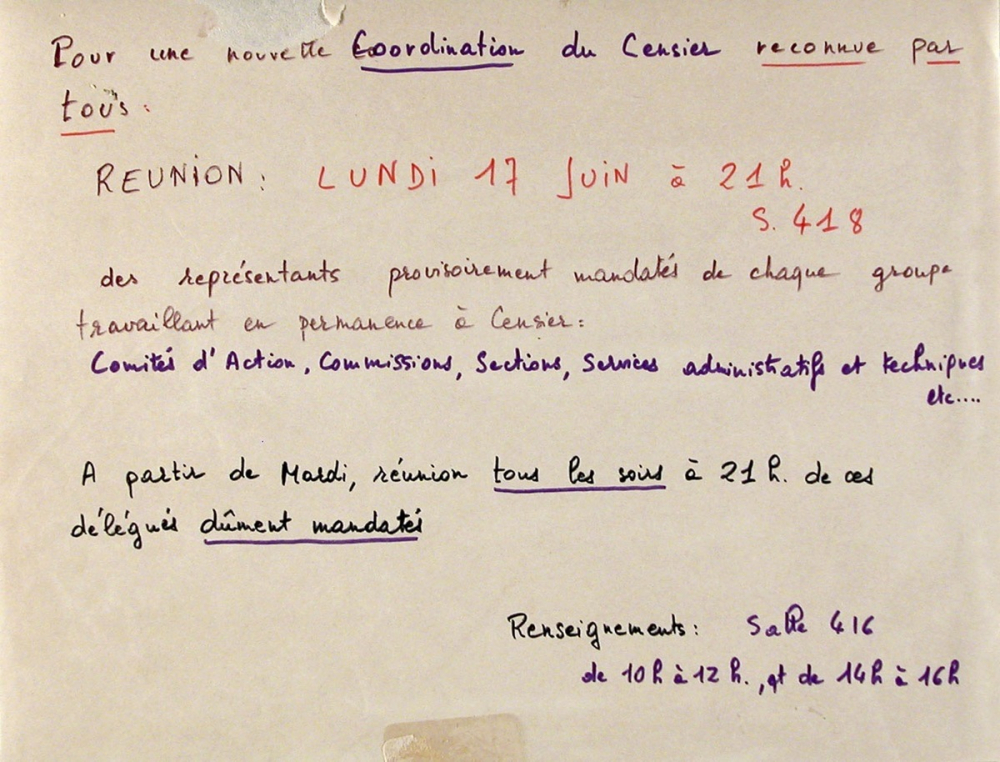 Pour une nouvelle Coordination du Censier reconnue par
tous.
REUNION: LUNDI 17 JUIN à 21h.
S. 418
des représentants provisoirement mandatés de chaque groupe
travaillant en permanence à Censier:
Comités d'Action, Commissions, Sections, Services administratifs et techniques
etc....
A partir de Mardi, réunion tous les soirs à 21 h. de ces
délégués dûment mandatés
Renseignements: Salle 416
de 10h à 12 h., et de 14h à 16h